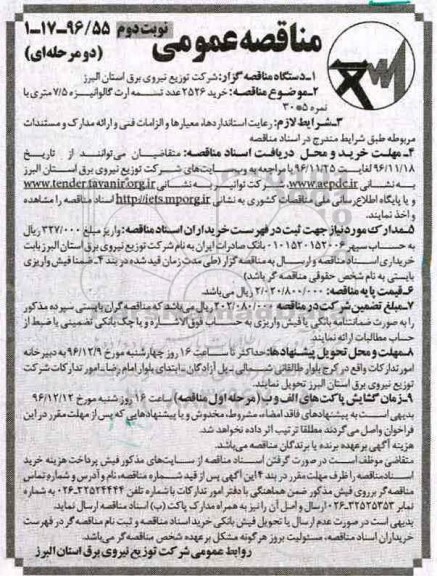 مناقصه عمومی
نوبت دوم
۹۶/۵۵-۱۷-۱
(دو مرحله‌ای)
۱-دستگاه مناقصه گزار: شرکت توزیع نیروی برق استان البرز
۲-موضوع مناقصه: خرید ۲۵۲۶ عدد تسمه ارت گالوانیزه ۷/۵ متری با
نمره ۵*۳۰
۳-شرایط لازم: رعایت استانداردها، معیارها و الزامات فنی و ارائه مدارک و مستندات
مربوطه طبق شرایط مندرج در اسناد مناقصه
۴-مهلت خرید و محل دریافت اسناد مناقصه: متقاضیان می‌توانند از تاریخ
۹۶/۱۱/۱۸ لغایت ۹۶/۱۱/۲۵ با مراجعه به وب‌سایت‌های شرکت توزیع نیروی برق استان البرز
به نشانی www.aepdc.ir، شرکت توانیر به نشانی www.tender.tavanir.org.ir
و یا پایگاه اطلاع‌رسانی ملی مناقصات کشوری به نشانی http://iets.mporg.ir اسناد مناقصه را مشاهده
و اخذ نمایند.
۵-مدارک مورد نیاز جهت ثبت در فهرست خریداران اسناد مناقصه: واریز مبلغ ۳۲۷/۰۰۰ ریال
به حساب سپهر ۰۱۰۱۵۲۰۱۵۲۰۰۶ بانک صادرات ایران به نام شرکت توزیع نیروی برق استان البرز بابت
خریداری اسناد مناقصه و ارسال به مناقصه گزار (طی مدت زمان قید شده در بند ۴ ضمنا فیش واریزی
بایستی به نام شخص حقوقی مناقصه گر باشد)
۶-قیمت پایه مناقصه: ۲/۰۲۰/۸۰۰/۰۰۰ ریال می‌باشد.
۷-مبلغ تضمین شرکت در مناقصه ۲۰۲/۰۸۰/۰۰۰ ریال می‌باشد که مناقصه گران بایستی سپرده مذکور
را به صورت ضمانتنامه بانکی یا فیش واریزی به حساب فوق‌الاشاره و یا چک بانکی تضمینی یا ضبط از
حساب مطالبات ارائه نمایند.
۸-مهلت و محل تحویل پیشنهادها: حداکثر تا ساعت ۱۶ روز چهارشنبه مورخ ۹۶/۱۲/۹ به دبیرخانه
امور تدارکات واقع در کرج بلوار طالقانی شمالی-پل آزادگان-ابتدای بلوار امام رضا-امور تدارکات شرکت
توزیع نیروی برق استان البرز تحویل نمایند.
۹-زمان گشایش پاکت‌های الف و ب (مرحله اول مناقصه) ساعت ۱۶ روز شنبه مورخ ۹۶/۱۲/۱۲
بدیهی است به پیشنهادهای فاقد امضاء، مشروط، مخدوش و یا پیشنهادهایی که پس از مهلت مقرر در این
فراخوان واصل می‌گردند مطلقا ترتیب اثر داده نخواهد شد.
هزینه آگهی برعهده برنده یا برندگان مناقصه می‌باشد.
متقاضی موظف است در صورت گرفتن اسناد مناقصه از سایت‌های مذکور فیش پرداخت هزینه خرید
اسناد مناقصه را ظرف مهلت مقرر در بند ۴ این آگهی پس از قید شماره مناقصه، نام و آدرس و شماره تماس
مناقصه گر برروی فیش مذکور ضمن هماهنگی با دفتر امور تدارکات با شماره تلفن ۳۲۵۲۴۴۲۴-۰۲۶ به شماره
نمابر ۳۲۵۲۵۳۵۳-۰۲۶ ارسال و اصل آن را نیز به همراه مدارک پاکت (ب) اسناد مناقصه ارسال نماید.
بدیهی است در صورت عدم ارسال یا تحویل فیش بانکی خرید اسناد مناقصه و ثبت نام مناقصه گر در فهرست
خریداران اسناد مناقصه، مسئولیت بروز هرگونه مشکل برعهده شخص مناقصه گر می‌باشد.
روابط عمومی شرکت توزیع نیروی برق استان البرز